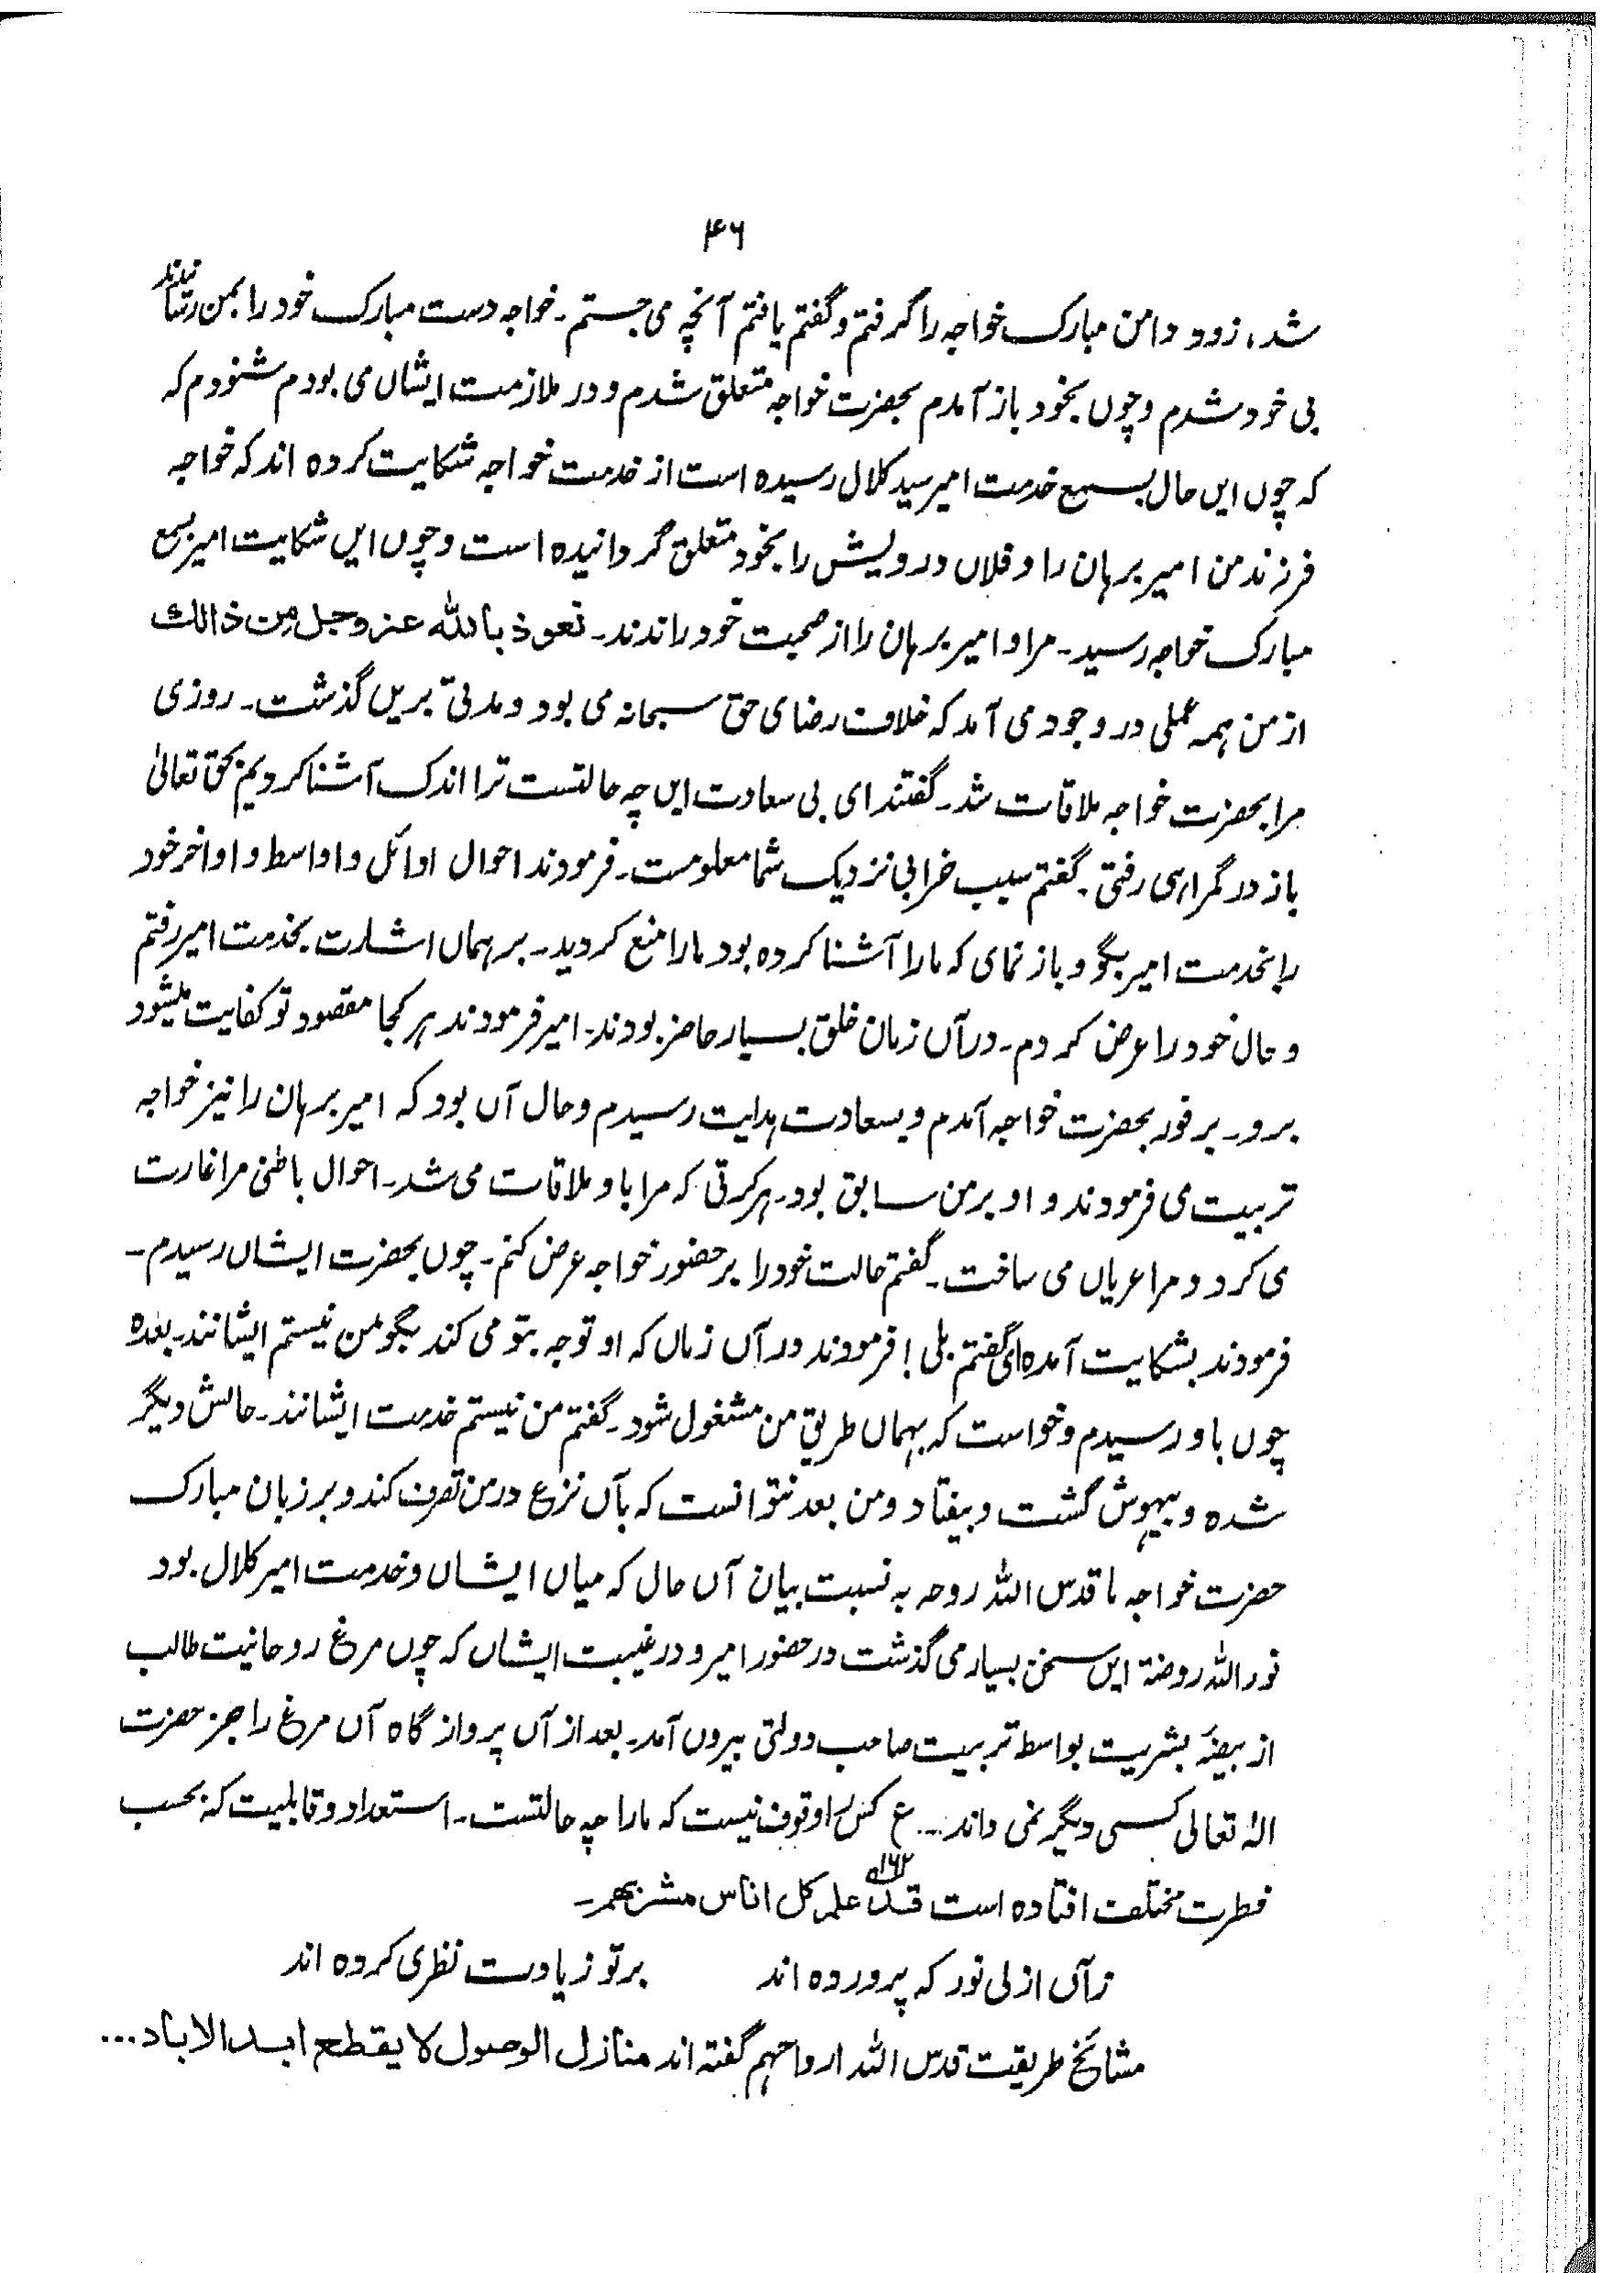 ۴۶
شد، زود دامن مبارک خواجہ را گرفتم و گفتم یافتم آنچہ می جستم۔ خواجہ دست مبارک خود را بمن رسانیدند
بی خود شدم و چوں بخود باز آمدم بحضرت خواجہ متعلق شدم و در ملازمت ایشاں می بودم شنودم کہ
کہ چوں ایں حال بسمع خدمت امیر سید کلال رسیدہ است از خدمت خواجہ شکایت کردہ اند کہ خواجہ
فرزند من امیر برہان را و فلاں درویش را بخود متعلق گردانیدہ است و چوں ایں شکایت امیر بسمع
مبارک خواجہ رسید۔ مرا و امیر برہان را از صحبت خود راندند۔ نعوذ باللہ عز و جل من ذالک
از من ہمہ عملی در وجود می آمد کہ خلاف رضای حق سبحانہ می بود و مدتی بریں گذشت۔ روزی
مرا بحضرت خواجہ ملاقات شد۔ گفتند ای بی سعادت ایں چہ حالتست ترا اندک آشنا کردیم بحق تعالیٰ
باز در گمراہی رفتی۔ گفتم سبب خرابی نزدیک شما معلومست۔ فرمودند احوال اوائل و اواسط و اواخر خود
را بخدمت امیر بگو و باز نمای کہ مارا آشنا کردہ بود مارا منع کردید۔ بر ہماں اشارت بخدمت امیر رفتم
و حال خود را عرض کردم۔ در آں زمان خلق بسیار حاضر بودند۔ امیر فرمودند ہر کجا مقصود تو کفایت میشود
برو۔ بر فور بحضرت خواجہ آمدم و بسعادت ہدایت رسیدم و حال آں بود کہ امیر برہان را نیز خواجہ
تربیت می فرمودند و او بر من سابق بود۔ ہر کرتی کہ مرا با و ملاقات می شد۔ احوال باطنی مرا غارت
می کرد و مرا عریاں می ساخت۔ گفتم حالت خود را بر حضور خواجہ عرض کنم۔ چوں بحضرت ایشاں رسیدم۔
فرمودند بشکایت آمدہ ای گفتم بلی! فرمودند در آں زماں کہ او توجہ بتو می کند بگو من نیستم ایشانند۔ بعدہ
چوں باو رسیدم و خواست کہ بہماں طریق من مشغول شود۔ گفتم من نیستم خدمت ایشانند۔ حالش دیگر
شدہ و بیہوش گشت و بیفتاد و من بعد نتوانست کہ بآں نزع در من تصرف کند و بر زبان مبارک
حضرت خواجہ ما قدس اللہ روحہ بہ نسبت بیان آں حال کہ میاں ایشاں و خدمت امیر کلال بود
نور اللہ روضۃ ایں سخن بسیار می گذشت در حضور امیر و در غیبت ایشاں کہ چوں مرغ روحانیت طالب
از بیضۂ بشریت بواسط تربیت صاحب دولتی بیروں آمد۔ بعد از آں پرواز گاہ آں مرغ را جز حضرت
الہٰ تعالی کسی دیگر نمی داند... ع کس را وقوف نیست کہ مارا چہ حالتست۔ استعداد و قابلیت کہ بحسب
فطرت مختلف افتادہ است قد علم کل اناس مشربھم۔
زآں ازلی نور کہ پروردہ اند    برتو زیادت نظری کردہ اند
مشائخ طریقت قدس اللہ ارواحہم گفتہ اند منازل الوصول لا یقطع ابد الاباد...